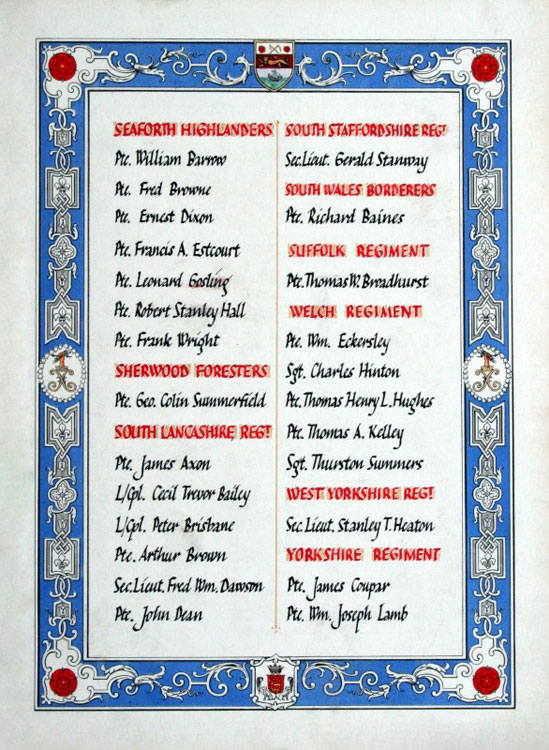 SEAFORTH HIGHLANDERS
Pte. William Barrow
Pte. Fred Browne
Pte. Ernest Dixon
Pte. Francis A. Estcourt
Pte. Leonard Gosling
Pte. Robert Stanley Hall
Pte. Frank Wright
SHERWOOD FORESTERS
Pte. Geo. Colin Summerfield
SOUTH LANCASHIRE REGT
Pte. James Axon
L/Cpl. Cecil Trevor Bailey
L/Cpl. Peter Brisbane
Pte. Arthur Brown
Sec.Lieut. Fred Wm. Dawson
Pte. John Dean
SOUTH STAFFORDSHIRE REGT
Sec.Lieut. Gerald Stanway
SOUTH WALES BORDERERS
Pte. Richard Baines
SUFFOLK REGIMENT
Pte. Thomas W. Broadhurst
WELCH REGIMENT
Pte. Wm. Eckersley
Sgt. Charles Hinton
Pte. Thomas Henry L. Hughes
Pte. Thomas A. Kelley
Sgt. Thurston Summers
WEST YORKSHIRE REGT
Sec.Lieut. Stanley T. Heaton
YORKSHIRE REGIMENT
Pte. James Coupar
Pte. Wm. Joseph Lamb